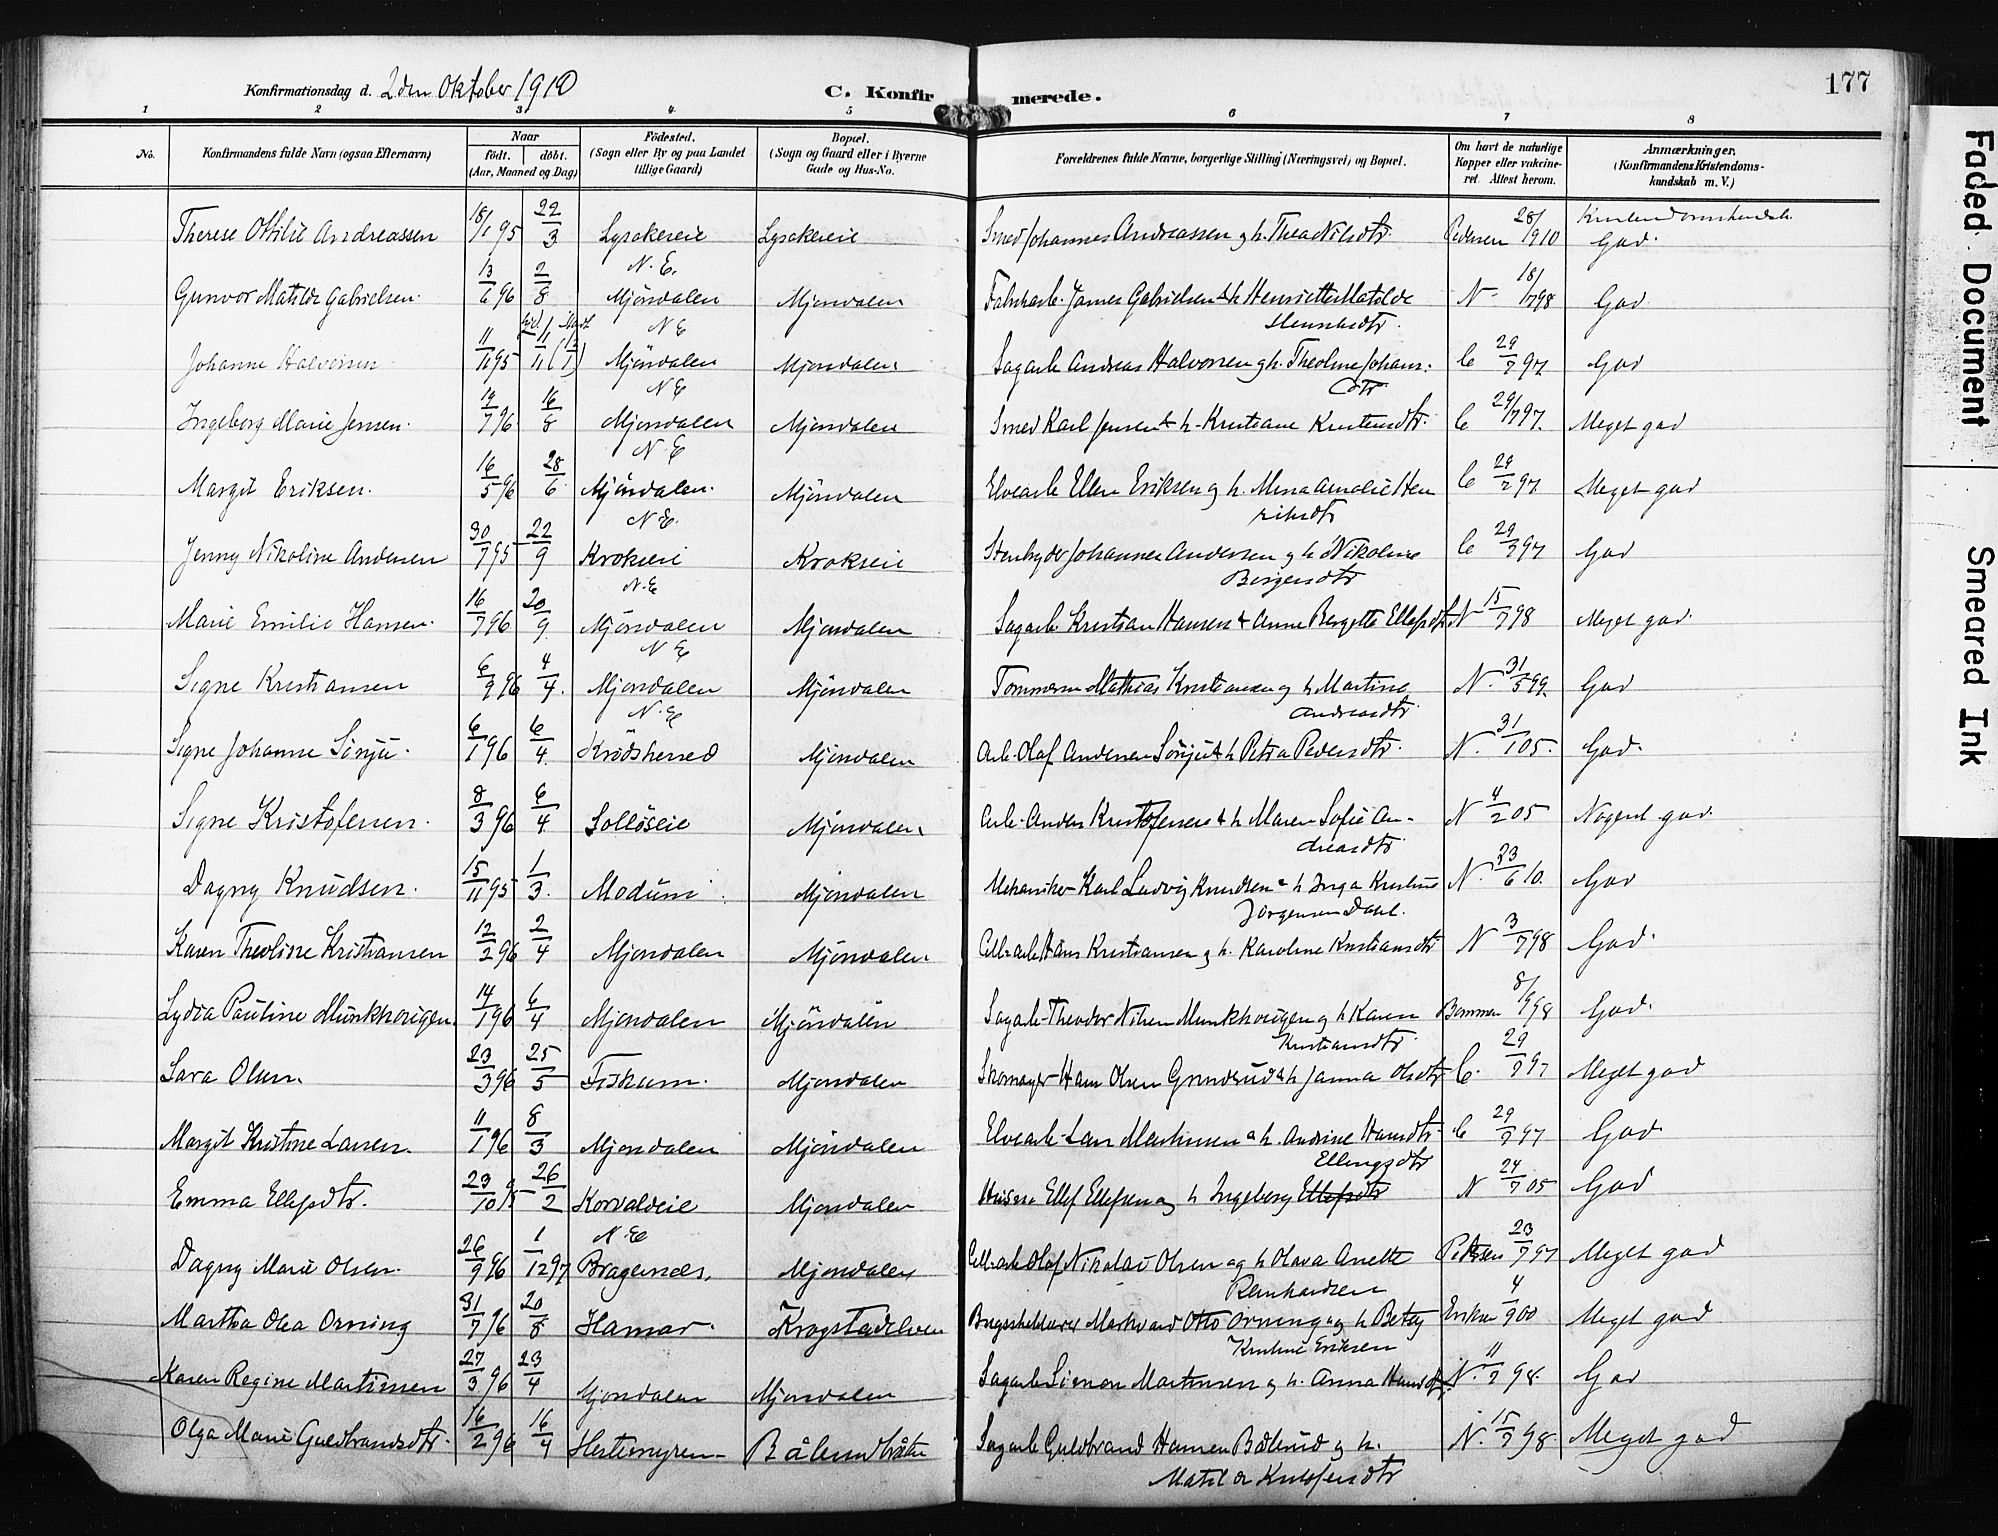 Konfirmationsdag d. 2den Oktober 1910 C. Konfirmerede. 177
1 2 3 4 5 6 7 8
No.
Konfirmandens fulde Navn (ogsaa Efternavn)
Naar
født. døbt.
(Aar, Maaned og Dag)
Fødested.
(Sogn eller By og paa Landet
tillige Gaard)
Bopæl.
(Sogn og Gaard eller i Byerne
Gade og Hus-No.
Forældrenes fulde Navne, borgerlige Stilling (Næringsvei) og Bopæl.
Om havt de naturlige
Kopper eller vakcine-
ret. Attest herom.
Anmærkninger.
(Konfirmandens Kristendoms-
kundskab m. V.)
Therese Ottilie Andreassen 18/1 95 22/3 Lysakereie Lysakereie Smed Johannes Andreassen og h. Thea Nilsdtr. Pedersen 28/1910 Kristendomskundsk. God.
N. E.
Gunvor Matilde Gabrielsen. 13/6 96 2/8 Mjöndalen Mjöndalen Fabrikarb. James Gabrielsen & h. Henriette Matilde N. 18/7 98 God
N E
Johanne Halvorsen 11/11 95 Mjöndalen Mjöndalen Sagarb. Andreas Halvorsen og h. Theoline Johans- C 29/7 97 God
N E dtr.
Ingeborg Marie Jensen. 19/7 96 16/8 Mjöndalen Mjöndalen Smed Karl Jensen & h. Kristiane Kristensdtr. C 29/7 97. Meget god
N. E
Margit Eriksen. 16/5 96 28/6 Mjöndalen. Mjöndalen Elvearb Ellen Eriksen og h. Mina Amalie Hen C 29/7 97 Meget god
N E. riksdtr
Jenny Nikoline Andersen 30/7 95 22/9 Krokseie Krokseie Stenhyder Johannes Andersen og h. Nikoline C 29/7 97 God
N. E Börgersdtr
Marie Emilie Hansen. 16/7 96 20/9 Mjöndalen Mjöndalen Sagarb Kristian Hansen & Anne Bergette Ellefsdtr N 15/7 98 Meget god.
N E
Signe Kristiansen 6/9 96 4/4. Mjöndalen Mjöndalen Tømmerm Mathias Kristiansen og h Martine N. 31/5 99. God
N. E Andreasdtr
Signe Johanne Sönju. 6/1 96 6/4. Krödsherred Mjöndalen Arb. Olaf Andersen Sönju & h Petra Pedersdtr. N. 31/1 05. God.
Signe Kristofersen. 8/3 96 6/4 Solløseie Mjöndalen Arb. Anders Kristofersen & h Maren Sofie An- N 4/2 05 Nogenl god.
dreasdtr
Dagny Knudsen. 15/11 95 1/3. Modum Mjöndalen Mekaniker Karl Ludvig Knudsen & h Inga Kristine N. 23/6 10. God
Jörgensen Dahl.
Karen Theoline Kristiansen 12/2 96 2/4 Mjöndalen Mjöndalen Cell-arb Hans Kristiansen og h. Karoline Kristiansdtr N 3/7 98 God.
Lydia Pauline Munkhaugen. 14/1 96 6/4 Mjöndalen Mjöndalen Sagarb. Theodor Nilsen Munkhaugen og h Karen 8/9 98 God.
Kristiansdtr
Sara Olsen. 23/3 96 25/5 Fiskum. Mjöndalen Skomager Hans Olsen Grindrud & h Janna Olsdtr C. 29/7 97 Meget god
Margit Kristine Larsen. 11/1 96 8/3 Mjöndalen Mjöndalen Elvearb Lars Martinsen & h. Andrine Hansdtr. C 29/7 97 God
Ellingsdtr
Emma Ellefsdtr. 23/10 95 26/2 Korvaldeie Mjöndalen Husm Ellef Ellefsen og h Ingeborg Ellefsdtr N 24/7 05 God
N. E
Dagny Marie Olsen. 26/9 96 1/12 97 Bragernes. Mjöndalen Cell-arb Olaf Nikolai Olsen og h Olava Anette Pettersen 23/7 97 Meget god
Reinhardsen
Martha Olea Orning 31/7 96 20/8 Hamar. Krogstadelven Markvard Otto Orning og h Betzy Eriksen 4/9 00 Meget god
Kristine Eriksen
Karen Regine Martinsen 27/3 96 23/4 Mjöndalen Mjöndalen Sagarb Simon Martinsen og h. Anna Hansdtr. N. 11/7 98. God
Olga Marie Guldbrandsdtr. 16/2 96 16/4 Hertemyren Bålerudbråten Sagarb Guldbrand Hansen Bålerud og h. N. 15/7 98. Meget god
Matilde Kristofersdtr
Faded Document
Smeared Ink